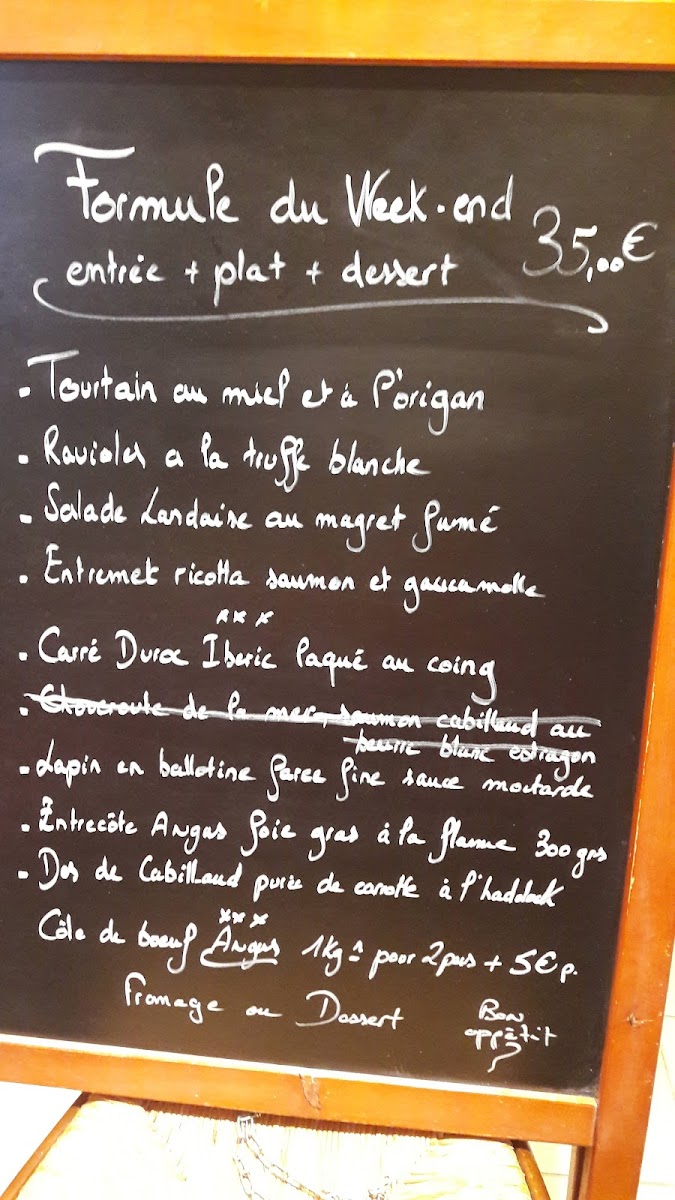 Formule du Week-end
35,00€
entrée + plat + dessert
. Tourtain au miel et à l'origan
. Ravioles a la truffe blanche
. Salade Landaise au magret fumé
. Entremet ricotta saumon et gaucamolle
xxx
. Carré Duroc Iberic laqué au coing
. Choucroute de la mer, saumon cabillaud au
beurre blanc estragon
. Lapin en ballotine farce fine sauce moutarde
. Entrecôte Angus foie gras à la flamme 300 grs
. Dos de Cabillaud purée de carotte à l'haddock
xxx
Côte de boeuf Angus 1kg pour 2 pers + 5€ p.
Fromage ou Dessert
Bon
appétit